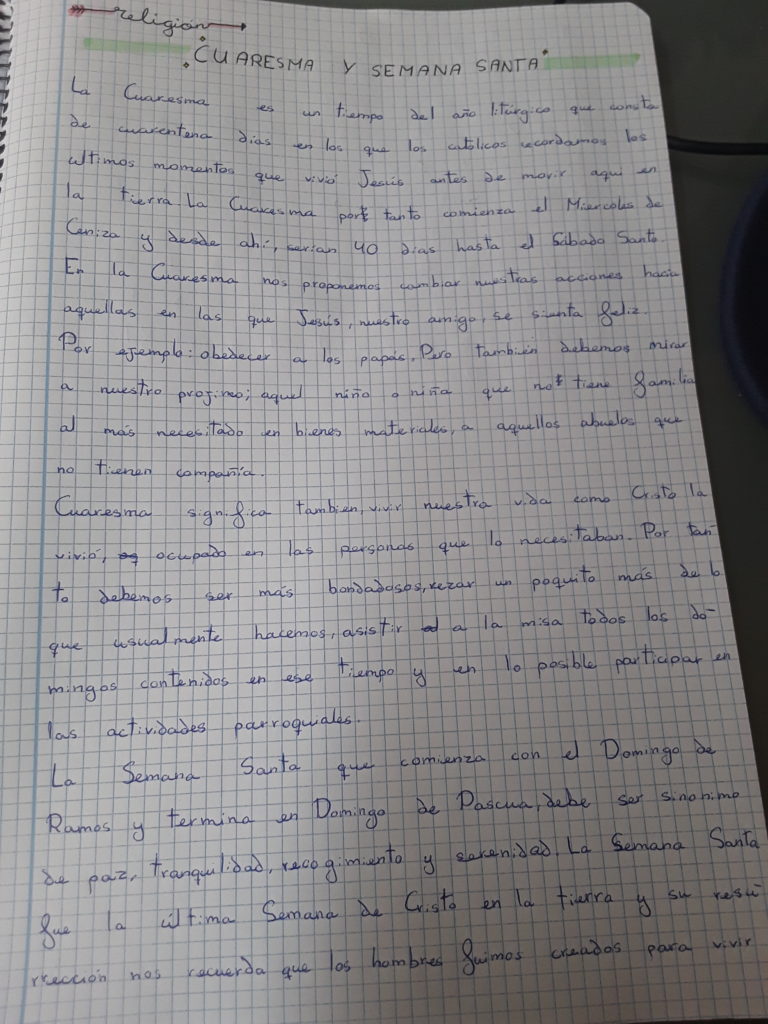 religión
CUARESMA Y SEMANA SANTA
La Cuaresma es un tiempo del año litúrgico que consta
de cuarentena dias en los que los católicos recordamos los
ultimos momentos que vivió Jesús antes de morir aqui en
la tierra. La Cuaresma por tanto comienza el Miercoles de
Ceniza y desde ahi, serian 40 dias hasta el Sábado Santo.
En la Cuaresma nos proponemos cambiar nuestras acciones hacia
aquellas en las que Jesús, nuestro amigo, se sienta feliz.
Por ejemplo: obedecer a los papás. Pero también debemos mirar
a nuestro projimo; aquel niño o niña que no tiene familia
al más necesitado en bienes materiales, a aquellos abuelos que
no tienen compañia.
Cuaresma significa tambien, vivir nuestra vida como Cristo la
vivió, ocupado en las personas que lo necesitaban. Por tan-
to debemos ser más bondadosos, rezar un poquito más de lo
que usualmente hacemos, asistir a la misa todos los do-
mingos contenidos en ese tiempo y en lo posible participar en
las actividades parroquiales.
La Semana Santa que comienza con el Domingo de
Ramos y termina en Domingo de Pascua, debe ser sinonimo
de paz, tranquilidad, recogimiento y serenidad. La Semana Santa
fue la última Semana de Cristo en la tierra y su resu
rrección nos recuerda que los hombres fuimos creados para vivir